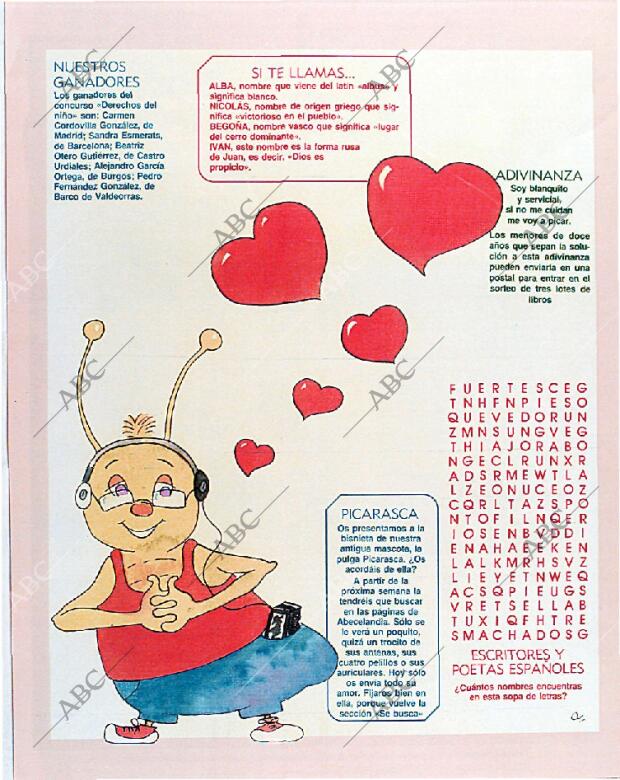 NUESTROS
GANADORES
Los ganadores del
concurso «Derechos del
niño» son: Carmen
Cordovilla González, de
Madrid; Sandra Esmerats,
de Barcelona; Beatriz
Otero Gutiérrez, de Castro
Urdiales; Alejandro García
Ortega, de Burgos; Pedro
Fernández González, de
Barco de Valdeorras.
SI TE LLAMAS...
ALBA, nombre que viene del latín «albus» y
significa blanco.
NICOLÁS, nombre de origen griego que sig-
nifica «victorioso en el pueblo».
BEGOÑA, nombre vasco que significa «lugar
del cerro dominante».
IVAN, este nombre es la forma rusa
de Juan, es decir, «Dios es
propicio».
ADIVINANZA
Soy blanquito
y servicial,
si no me cuidan
me voy a picar.
Los menores de doce
años que sepan la solu-
ción a esta adivinanza
pueden enviarla en una
postal para entrar en el
sorteo de tres lotes de
libros
PICARASCA
Os presentamos a la
bisnieta de nuestra
antigua mascota, la
pulga Picarasca. ¿Os
acordáis de ella?
A partir de la
próxima semana la
tendréis que buscar
en las páginas de
Abecelandia. Sólo se
le verá un poquito,
quizá un trocito de
sus antenas, sus
cuatro pelillos o sus
auriculares. Hoy sólo
os envía todo su
amor. Fijaros bien en
ella, porque vuelve la
sección «Se busca»
FUERTESCEG
TNHFNPIESO
QUEVEDORUN
ZMNSUNGVEG
THIAJORABO
NGECLRUNXR
ADSRMEWTLA
LZEONUCEOZ
CQRLTAZSPO
NTOFILNQER
IOSENBEDDI
LALKMRHSVZ
LIEYETNWEQ
ACSQPIEUGS
VRETSELLAB
TUXIQFHTRE
SMACHADOSG
ESCRITORES Y
POETAS ESPAÑOLES
¿Cuántos nombres encuentras
en esta sopa de letras?
ABC
ABC
ABC
ABC
ABC
ABC
ABC
ABC
ABC
ABC
ABC